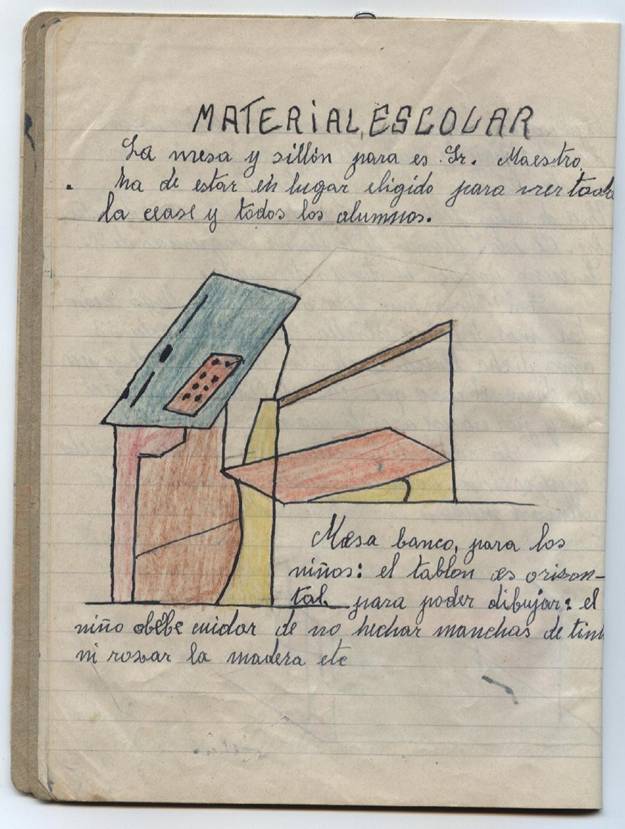 MATERIAL ESCOLAR
La mesa y sillón para es Sr. Maestro,
ha de estar en lugar eligido para ver toda
la clase y todos los alumnos.
Mesa banco, para los
niños: el tablon es orison-
tal para poder dibujar: el
niño debe cuidar de no hechar manchas de tint
ni rosar la madera etc